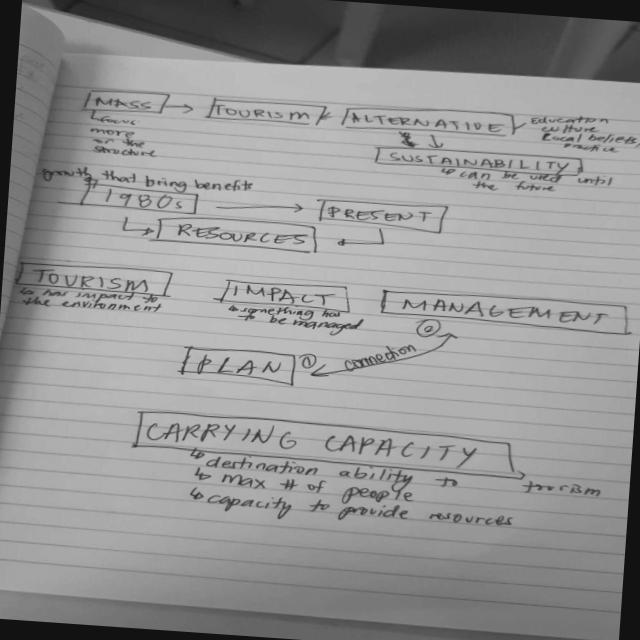 MASS → TOURISM ALTERNATIVE Education
focus culture
more local beliefs,
on the practice
structure SUSTAINABILITY
can be used until
the future
growth that bring benefits
1980s → PRESENT
RESOURCES
TOURISM IMPACT MANAGEMENT
has impact to something has
the environment to be managed
PLAN ① connection ②
CARRYING CAPACITY
destination ability to tourism
max # of people
capacity to provide resources